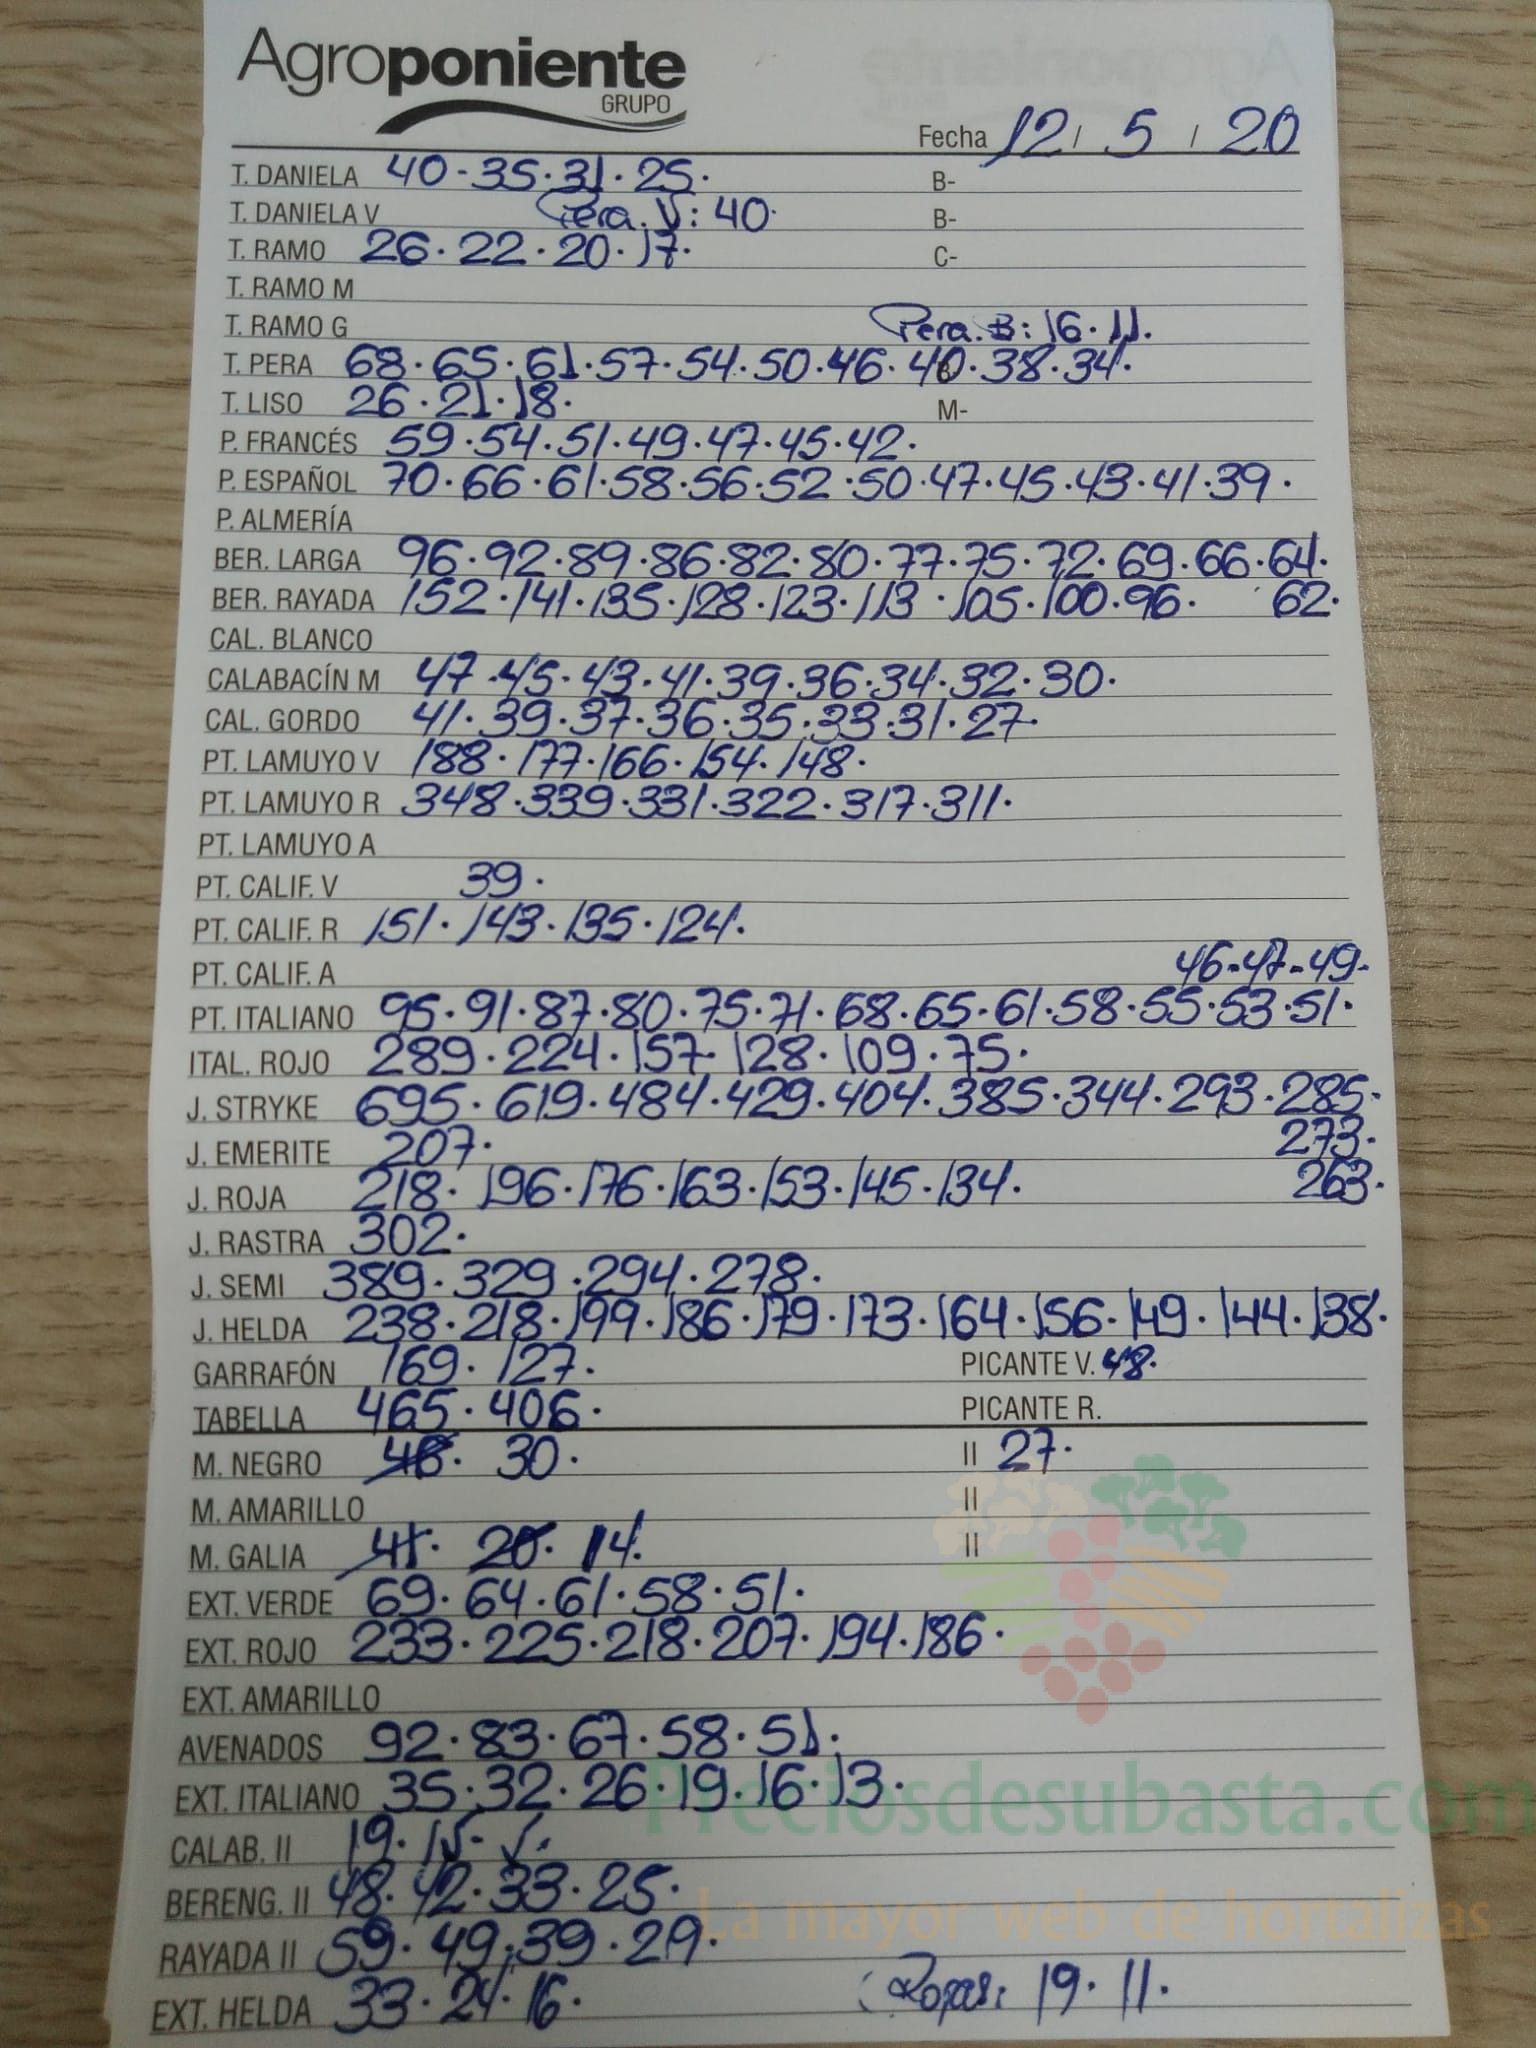 Agroponiente
GRUPO
Fecha 12 / 5 / 20
T. DANIELA 40 - 35 · 31 · 25 · B-
T. DANIELA V Pera. V: 40 · B-
T. RAMO 26 · 22 · 20 · 17 · C-
T. RAMO M
T. RAMO G Pera. B: 16 · 11 ·
T. PERA 68 · 65 · 61 · 57 · 54 · 50 · 46 · 40 · 38 · 34 ·
T. LISO 26 · 21 · 18 · M-
P. FRANCÉS 59 · 54 · 51 · 49 · 47 · 45 · 42 ·
P. ESPAÑOL 70 · 66 · 61 · 58 · 56 · 52 · 50 · 47 · 45 · 43 · 41 · 39 ·
P. ALMERÍA
BER. LARGA 96 · 92 · 89 · 86 · 82 · 80 · 77 · 75 · 72 · 69 · 66 · 64 ·
BER. RAYADA 152 · 141 · 135 · 128 · 123 · 113 · 105 · 100 · 96 · 62 ·
CAL. BLANCO
CALABACÍN M 47 · 45 · 43 · 41 · 39 · 36 · 34 · 32 · 30 ·
CAL. GORDO 41 · 39 · 37 · 36 · 35 · 33 · 31 · 27 ·
PT. LAMUYO V 188 · 177 · 166 · 154 · 148 ·
PT. LAMUYO R 348 · 339 · 331 · 322 · 317 · 311 ·
PT. LAMUYO A
PT. CALIF. V 39 ·
PT. CALIF. R 151 · 143 · 135 · 124 ·
PT. CALIF. A 46 - 47 - 49 -
PT. ITALIANO 95 · 91 · 87 · 80 · 75 · 71 · 68 · 65 · 61 · 58 · 55 · 53 · 51 ·
ITAL. ROJO 289 · 224 · 157 · 128 · 109 · 75 ·
J. STRYKE 695 · 619 · 484 · 429 · 404 · 385 · 344 · 293 · 285 ·
J. EMERITE 207 · 273 ·
J. ROJA 218 · 196 · 176 · 163 · 153 · 145 · 134 · 263 ·
J. RASTRA 302 ·
J. SEMI 389 · 329 · 294 · 278 ·
J. HELDA 238 · 218 · 199 · 186 · 179 · 173 · 164 · 156 · 149 · 144 · 138 ·
GARRAFÓN 169 · 127 · PICANTE V. 48 ·
TABELLA 465 · 406 · PICANTE R.
M. NEGRO 30 · II 27 ·
M. AMARILLO II
M. GALIA 14 · II
EXT. VERDE 69 · 64 · 61 · 58 · 51 ·
EXT. ROJO 233 · 225 · 218 · 207 · 194 · 186 ·
EXT. AMARILLO
AVENADOS 92 · 83 · 67 · 58 · 51 ·
EXT. ITALIANO 35 · 32 · 26 · 19 · 16 · 13 ·
Preciosdesubasta.com
CALAB. II 19 · 15 ·
BERENG. II 48 · 42 · 33 · 25 ·
La mayor web de hortalizas
RAYADA II 59 · 49 · 39 · 29 ·
EXT. HELDA 33 · 24 · 16 · Rojas: 19 · 11 ·